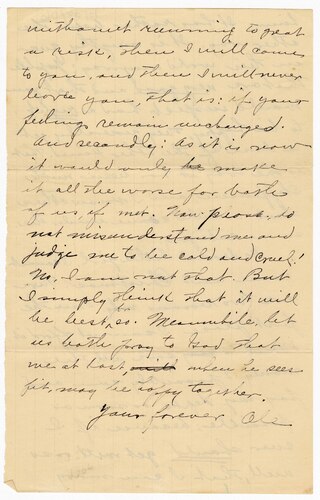 without running to great
a risk, then I will come
to you, and then I will never
leave you, that is: if your
feelings remain unchanged.
And secondly: As it is now
it would only be make
it all the worse for both
of us, if met. Now please, do
not misunderstand me and
judge me to be cold and cruel!
No, I am not that. But
I simply think that it will
be best so. Meanwhile, let
us both pray to God that
we at last when he sees
fit, may be happy together.
Your forever Ole